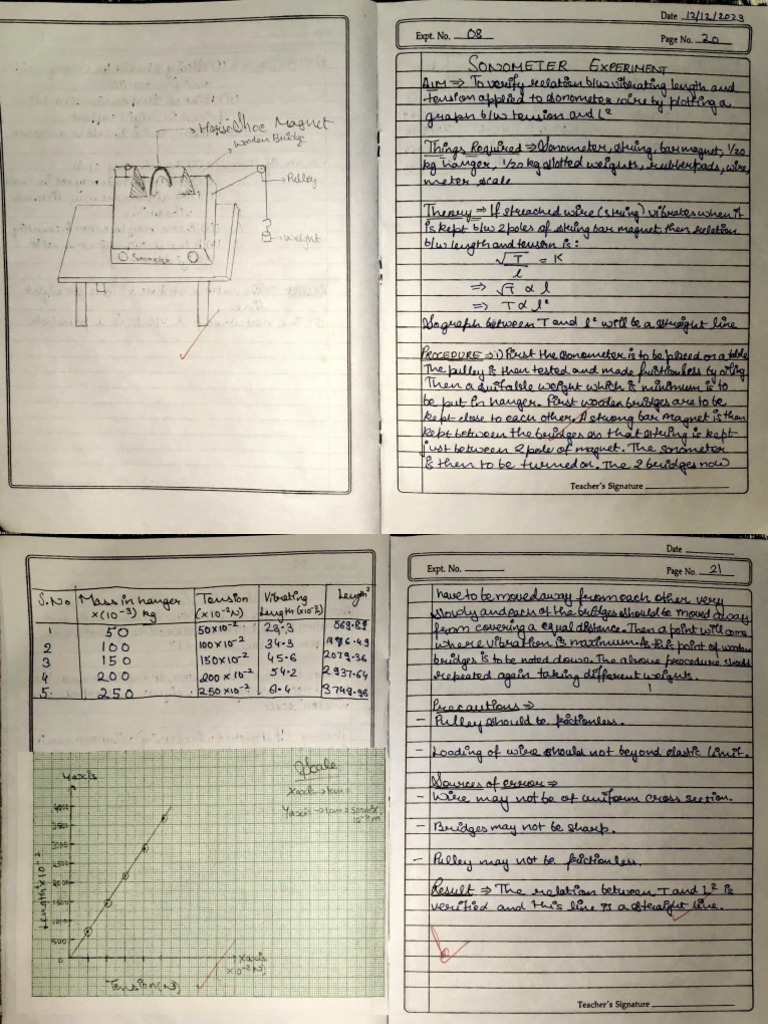 Horse Shoe Magnet
Wooden Bridge
Pulley
Weight
Sonometer
Date 12/12/2023
Expt. No. 08
Page No. 20
SONOMETER EXPERIMENT
AIM ⇒ To verify relation b/w vibrating length and
tension applied to sonometer wire by plotting a
graph b/w tension and L²
Things Required ⇒ Sonometer, string, bar magnet, 1/20
kg hanger, 1/20 kg slotted weights, rubber pads, wire,
meter scale
Theory ⇒ If streached wire (string) vibrates when it
is kept b/w 2 poles of string bar magnet then relation
b/w length and tension is:
√T / l = K
⇒ √T ∝ l
⇒ T ∝ l²
So graph between T and l² will be a straight line
PROCEDURE ⇒ 1) First the sonometer is to be placed on a table
The pulley is then tested and made frictionless by oiling
Then a suitable weight which is minimum is to
be put in hanger. First wooden bridges are to be
kept close to each other. A strong bar magnet is then
kept between the bridges so that string is kept
just between 2 pole of magnet. The sonometer
is then to be turned on. The 2 bridges now
Teacher's Signature
S.No Mass in hanger x(10⁻³) kg Tension (x10⁻²N) Vibrating Length (x10⁻²) Length²
1 50 50x10⁻² 23.3
2 100 100x10⁻² 34.3
3 150 150x10⁻² 45.6 2079.36
4 200 200x10⁻² 54.2 2937.64
5. 250 250x10⁻² 61.4
Scale
Y axis
X axis → 1cm =
Y axis → 1cm =
4000
3500
3000
2500
2000
1500
1000
500
Length² x10⁻²
X axis
x10⁻² N)
Tension (N)
Date
Expt. No.
Page No. 21
have to be moved away from each other very
slowly and each of the bridges should be moved away
from covering a equal distance. Then a point will come
where vibration is maximum. At this point of wooden
bridges is to be noted down. The above procedure should
repeated again taking different weights.
Precautions ⇒
- Pulley should be frictionless.
- Loading of wire should not beyond elastic limit.
Sources of error ⇒
- Wire may not be of uniform cross section.
- Bridges may not be sharp.
- Pulley may not be frictionless.
Result ⇒ The relation between T and L² is
verified and this line is a straight line.
Teacher's Signature